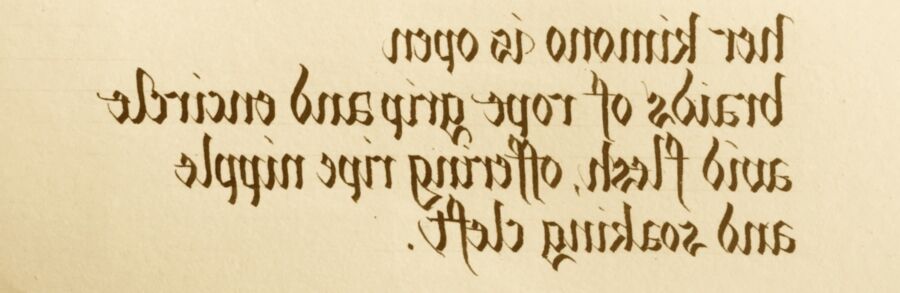 her kimono is open
braids of rope grip and encircle
avid flesh, offering ripe nipple
and soaking cleft.